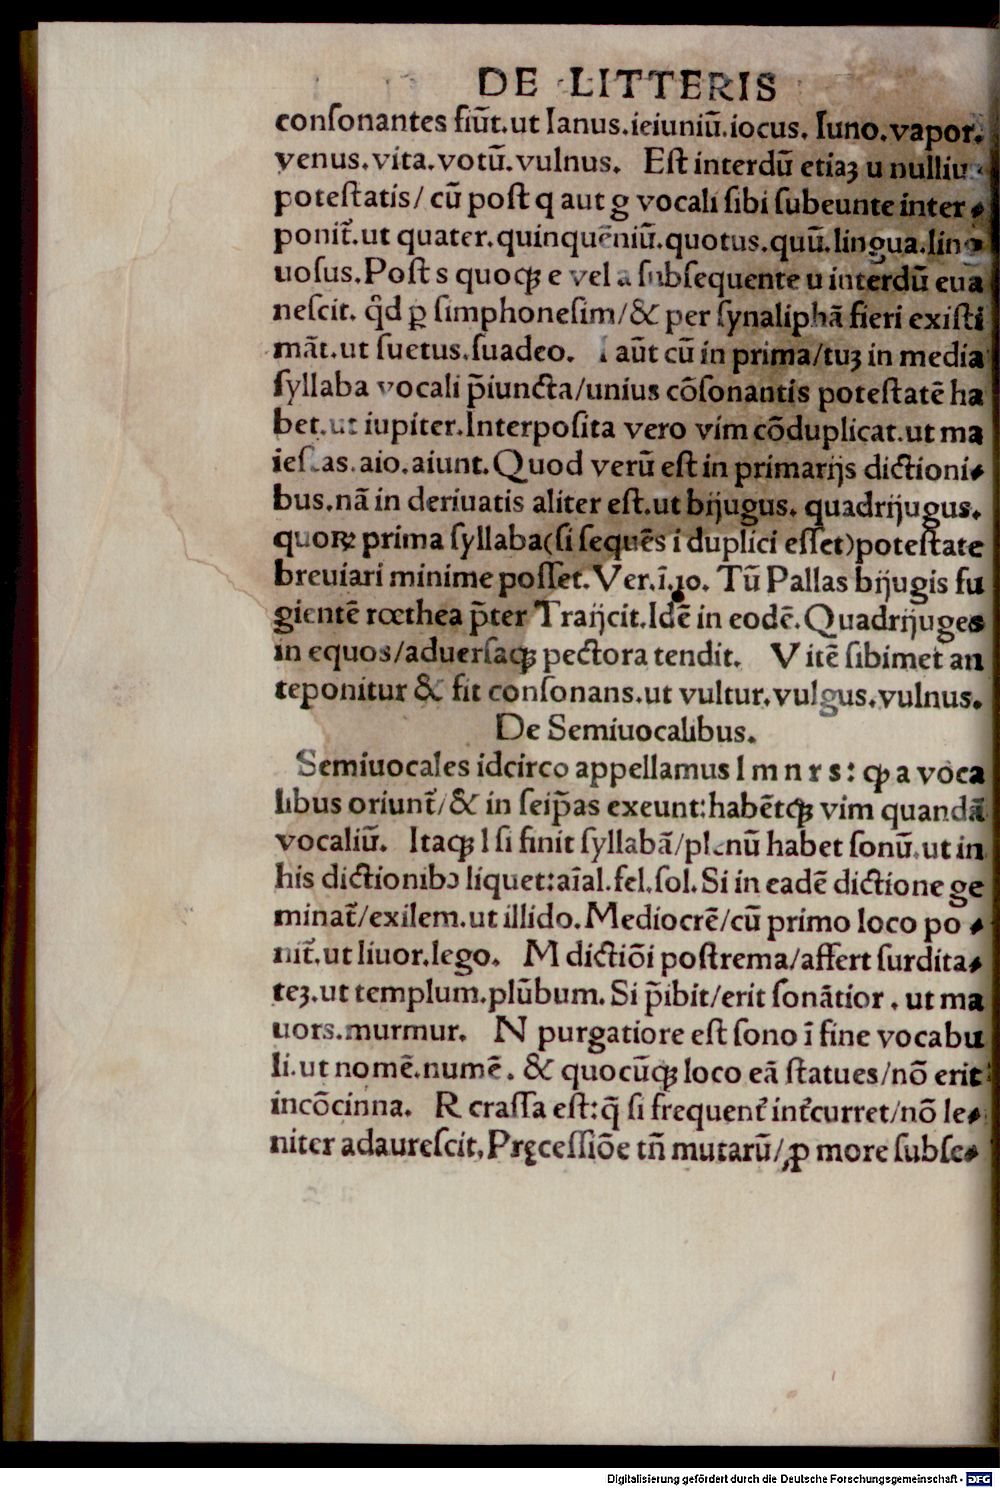 DE LITTERIS
conſonantes fiūt.ut Ianus.ieiuniū.iocus. Iuno.vapor.
venus.vita.votū.vulnus. Eſt interdū etiaꝫ u nulliu
poteſtatis/ cū poſt q aut g vocali ſibi ſubeunte inter⸗
ponit̃.ut quater.quinquēniū.quotus.quū.lingua.lin⸗
uoſus.Poſt s quoqꝫ e vel a ſubſequente u interdū eua
neſcit. q̊d ꝑ ſimphoneſim/& per ſynaliphā fieri exiſti
māt.ut ſuetus.ſuadeo. I aūt cū in prima/tuꝫ in media
ſyllaba vocali p̄iuncta/unius cōſonantis poteſtatē ha
bet.ut iupiter.Interpoſita vero vim cōduplicat.ut ma
ieſtas.aio.aiunt.Quod verū eſt in primarijs dictioni⸗
bus.nā in deriuatis aliter eſt.ut bijugus. quadrijugus.
quoꝝ prima ſyllaba(ſi ſequēs i duplici eſſet)poteſtate
breuiari minime poſſet.Ver.ī.10. Tū Pallas bijugis fu
gientē rœthea p̄ter Traijcit.Idē in eodē.Quadrijuges
in equos/aduerſaqꝫ pectora tendit. V itē ſibimet an
teponitur & fit conſonans.ut vultur.vulgus.vulnus.
De Semiuocalibus.
Semiuocales idcirco appellamus l m n r s: ꝙ a voca
libus oriunt̃/& in ſeip̄as exeunt:habētqꝫ vim quandā
vocaliū. Itaqꝫ l ſi finit ſyllabā/plenū habet ſonū.ut in
his dictionibꝰ liquet:aīal.fel.ſol.Si in eadē dictione ge
minat̃/exilem.ut illido.Mediocrē/cū primo loco po⸗
nit̃.ut liuor.lego. M dictiōi poſtrema/affert ſurdita⸗
teꝫ.ut templum.plūbum.Si p̄ibit/erit ſonātior.ut ma
uors.murmur. N purgatiore eſt ſono ī fine vocabu
li.ut nomē.numē. & quocūqꝫ loco eā ſtatues/nō erit
incōcinna. R craſſa eſt:q̄ ſi frequent̃ int̃curret/nō le⸗
niter adaureſcit.Pręceſſiōe tn̄ mutarū/ꝓ more ſubſe⸗
Digitalisierung gefördert durch die Deutsche Forschungsgemeinschaft - DFG